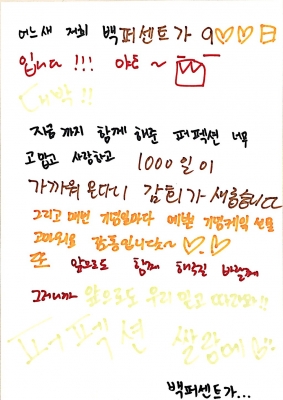 어느새 저희 백퍼센트가 9♡♡日
입니다 !!! 야호~
대박 !!
지금까지 함께 해준 퍼펙션 너무
고맙고 사랑하고 1000일이
가까워 온다니 감회가 새롭습니다
그리고 매번 기념일마다 예쁜 기념케익 선물
고마워요 감동입니다~ ♡.♡
또 앞으로도 함께 해주길 바랄께
그러니까 앞으로도 우리 믿고 따라와!!
퍼펙션 쌀앙해
백퍼센트가...